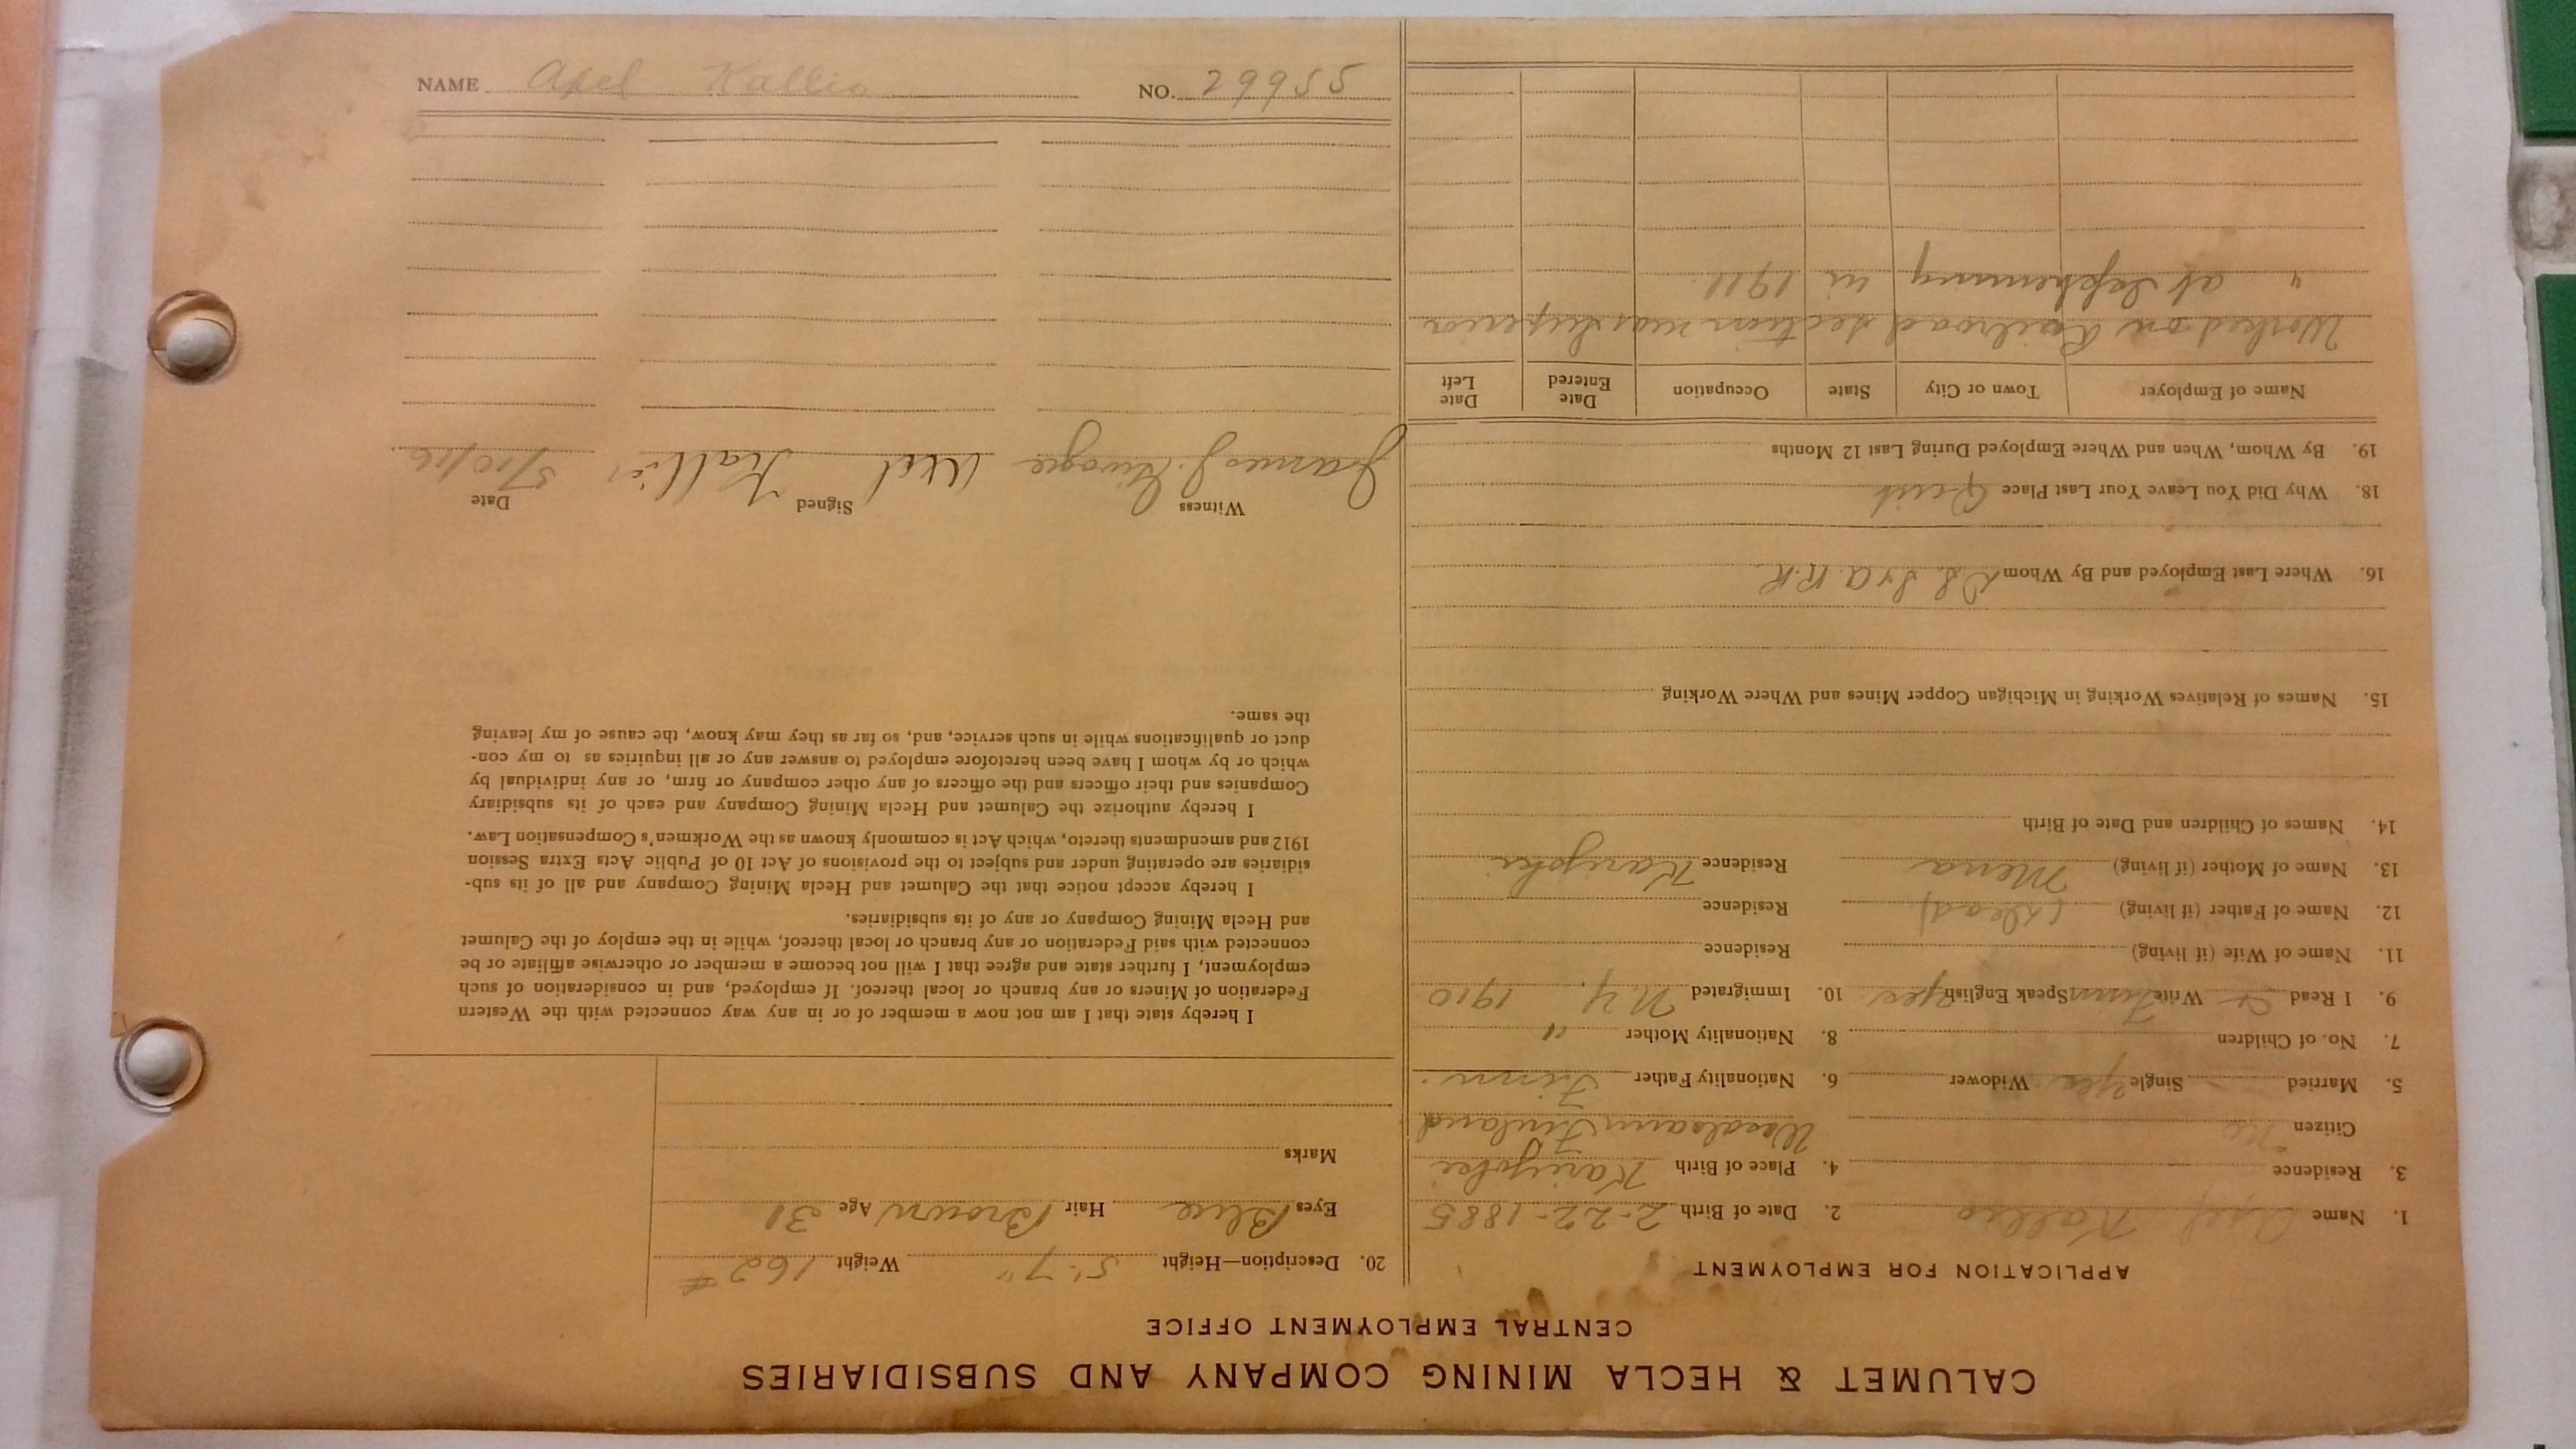 CALUMET & HECLA MINING COMPANY AND SUBSIDIARIES
CENTRAL EMPLOYMENT OFFICE
APPLICATION FOR EMPLOYMENT
1. Name Axel Kallio 2. Date of Birth 2-22-1885
3. Residence 4. Place of Birth Karijoki
Citizen No Finland
5. Married Single Yes Widower 6. Nationality Father Finn.
7. No. of Children 8. Nationality Mother "
9. I Read & Write Finn Speak English Yes 10. Immigrated N.Y. 1910
11. Name of Wife (if living) Residence
12. Name of Father (if living) (dead) Residence
13. Name of Mother (if living) Mena Residence Karijoki
14. Names of Children and Date of Birth
15. Names of Relatives Working in Michigan Copper Mines and Where Working
16. Where Last Employed and By Whom D.S.S. & A. R.R.
18. Why Did You Leave Your Last Place Quit
19. By Whom, When and Where Employed During Last 12 Months
Name of Employer Town or City State Occupation Date Entered Date Left
Worked on Railroad section near Superior
" at Ishpeming in 1911.
20. Description—Height 5'-7" Weight 162#
Eyes Blue Hair Brown Age 31
Marks
I hereby state that I am not now a member of or in any way connected with the Western
Federation of Miners or any branch or local thereof. If employed, and in consideration of such
employment, I further state and agree that I will not become a member or otherwise affiliate or be
connected with said Federation or any branch or local thereof, while in the employ of the Calumet
and Hecla Mining Company or any of its subsidiaries.
I hereby accept notice that the Calumet and Hecla Mining Company and all of its sub-
sidiaries are operating under and subject to the provisions of Act 10 of Public Acts Extra Session
1912 and amendments thereto, which Act is commonly known as the Workmen's Compensation Law.
I hereby authorize the Calumet and Hecla Mining Company and each of its subsidiary
Companies and their officers and the officers of any other company or firm, or any individual by
which or by whom I have been heretofore employed to answer any or all inquiries as to my con-
duct or qualifications while in such service, and, so far as they may know, the cause of my leaving
the same.
Witness Signed Date
James J. Axel Kallio 5/10/16
NAME Axel Kallio NO. 29955